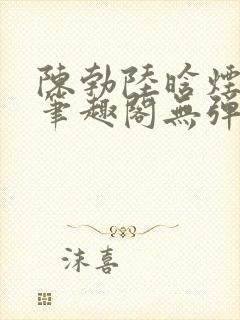 陳勃陸晗煙
筆趣閣無彈
沫喜